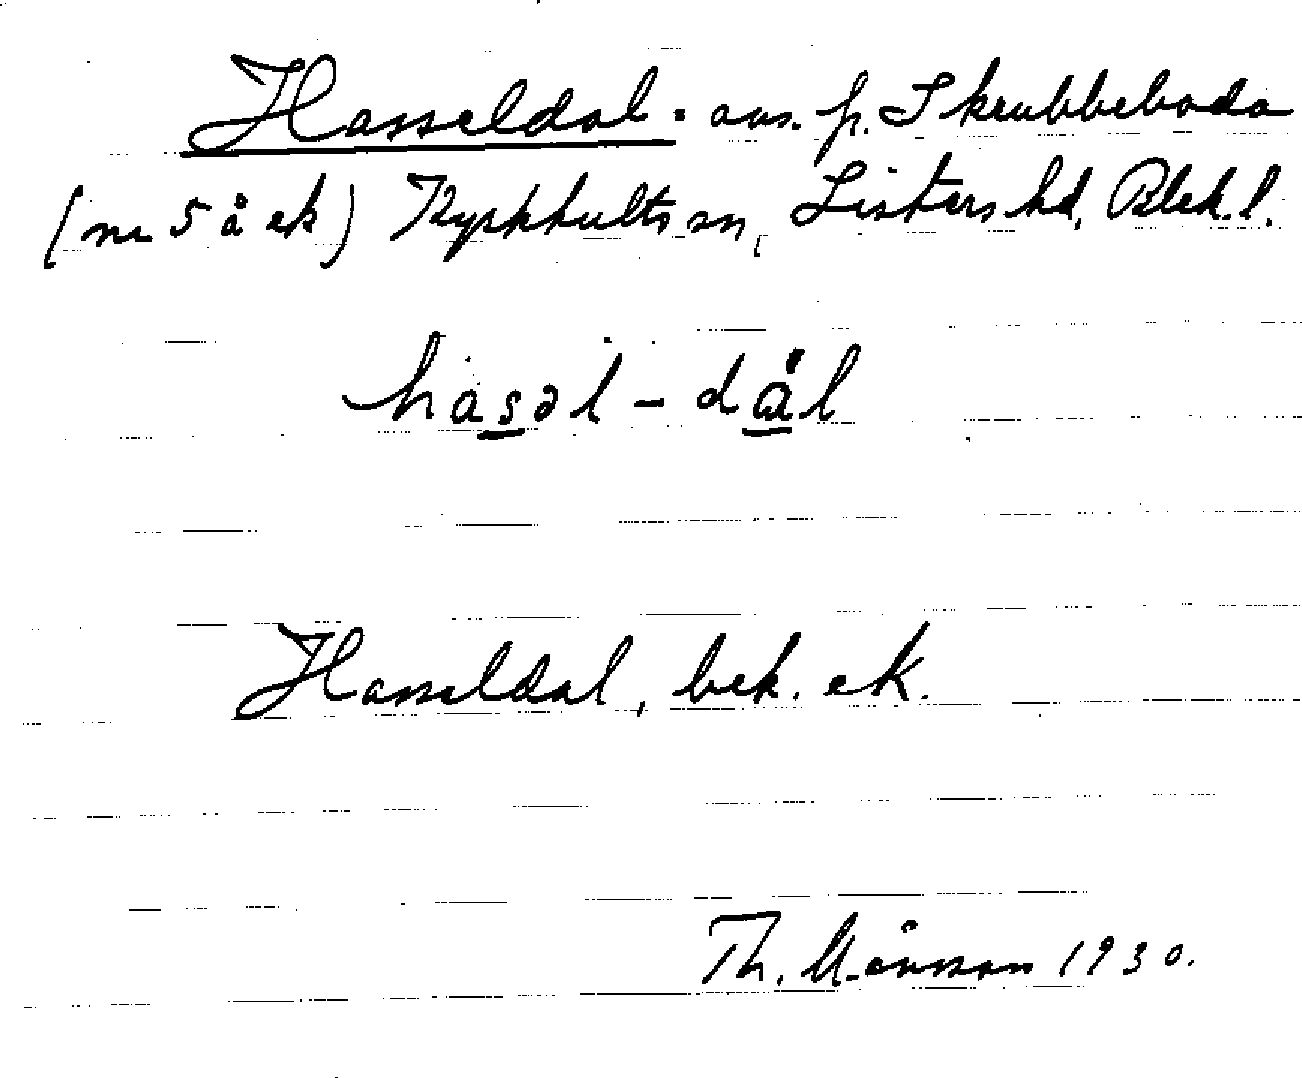 Hasseldal. avs. fr. Skrubbeboda
(nr 5 å ek) Kyrkhults sn, Listers hd, Blek. l.
hasəl - dȧl
Hasseldal, bek. ek.
Th. Månsson 1930.